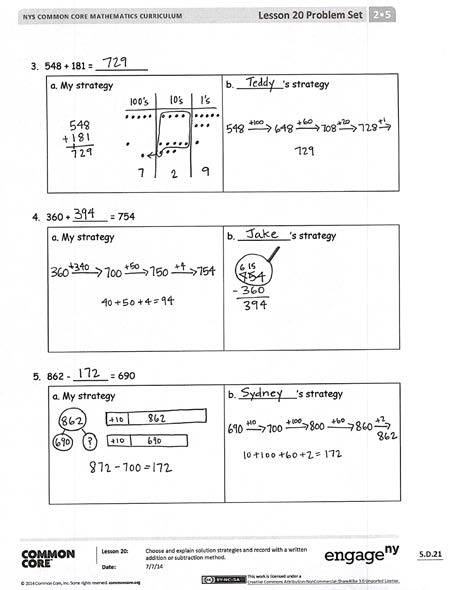 NYS COMMON CORE MATHEMATICS CURRICULUM Lesson 20 Problem Set 2•5
3. 548 + 181 = 729
a. My strategy
548
+ 181
729
100's 10's 1's
7 2 9
b. Teddy's strategy
548 +100→ 648 +60→ 708 +20→ 728 +1→
729
4. 360 + 394 = 754
a. My strategy
360 +340→ 700 +50→ 750 +4→ 754
40 + 50 + 4 = 94
b. Jake's strategy
6 15
754
- 360
394
5. 862 - 172 = 690
a. My strategy
862
690 ?
+10 862
+10 690
872 - 700 = 172
b. Sydney's strategy
690 +10→ 700 +100→ 800 +60→ 860 +2→ 862
10 + 100 + 60 + 2 = 172
COMMON CORE™
Lesson 20: Choose and explain solution strategies and record with a written addition or subtraction method.
Date: 7/7/14
engage ny
5.D.21
© 2014 Common Core, Inc. Some rights reserved. commoncore.org
CC BY-NC-SA
This work is licensed under a
Creative Commons Attribution-NonCommercial-ShareAlike 3.0 Unported License.